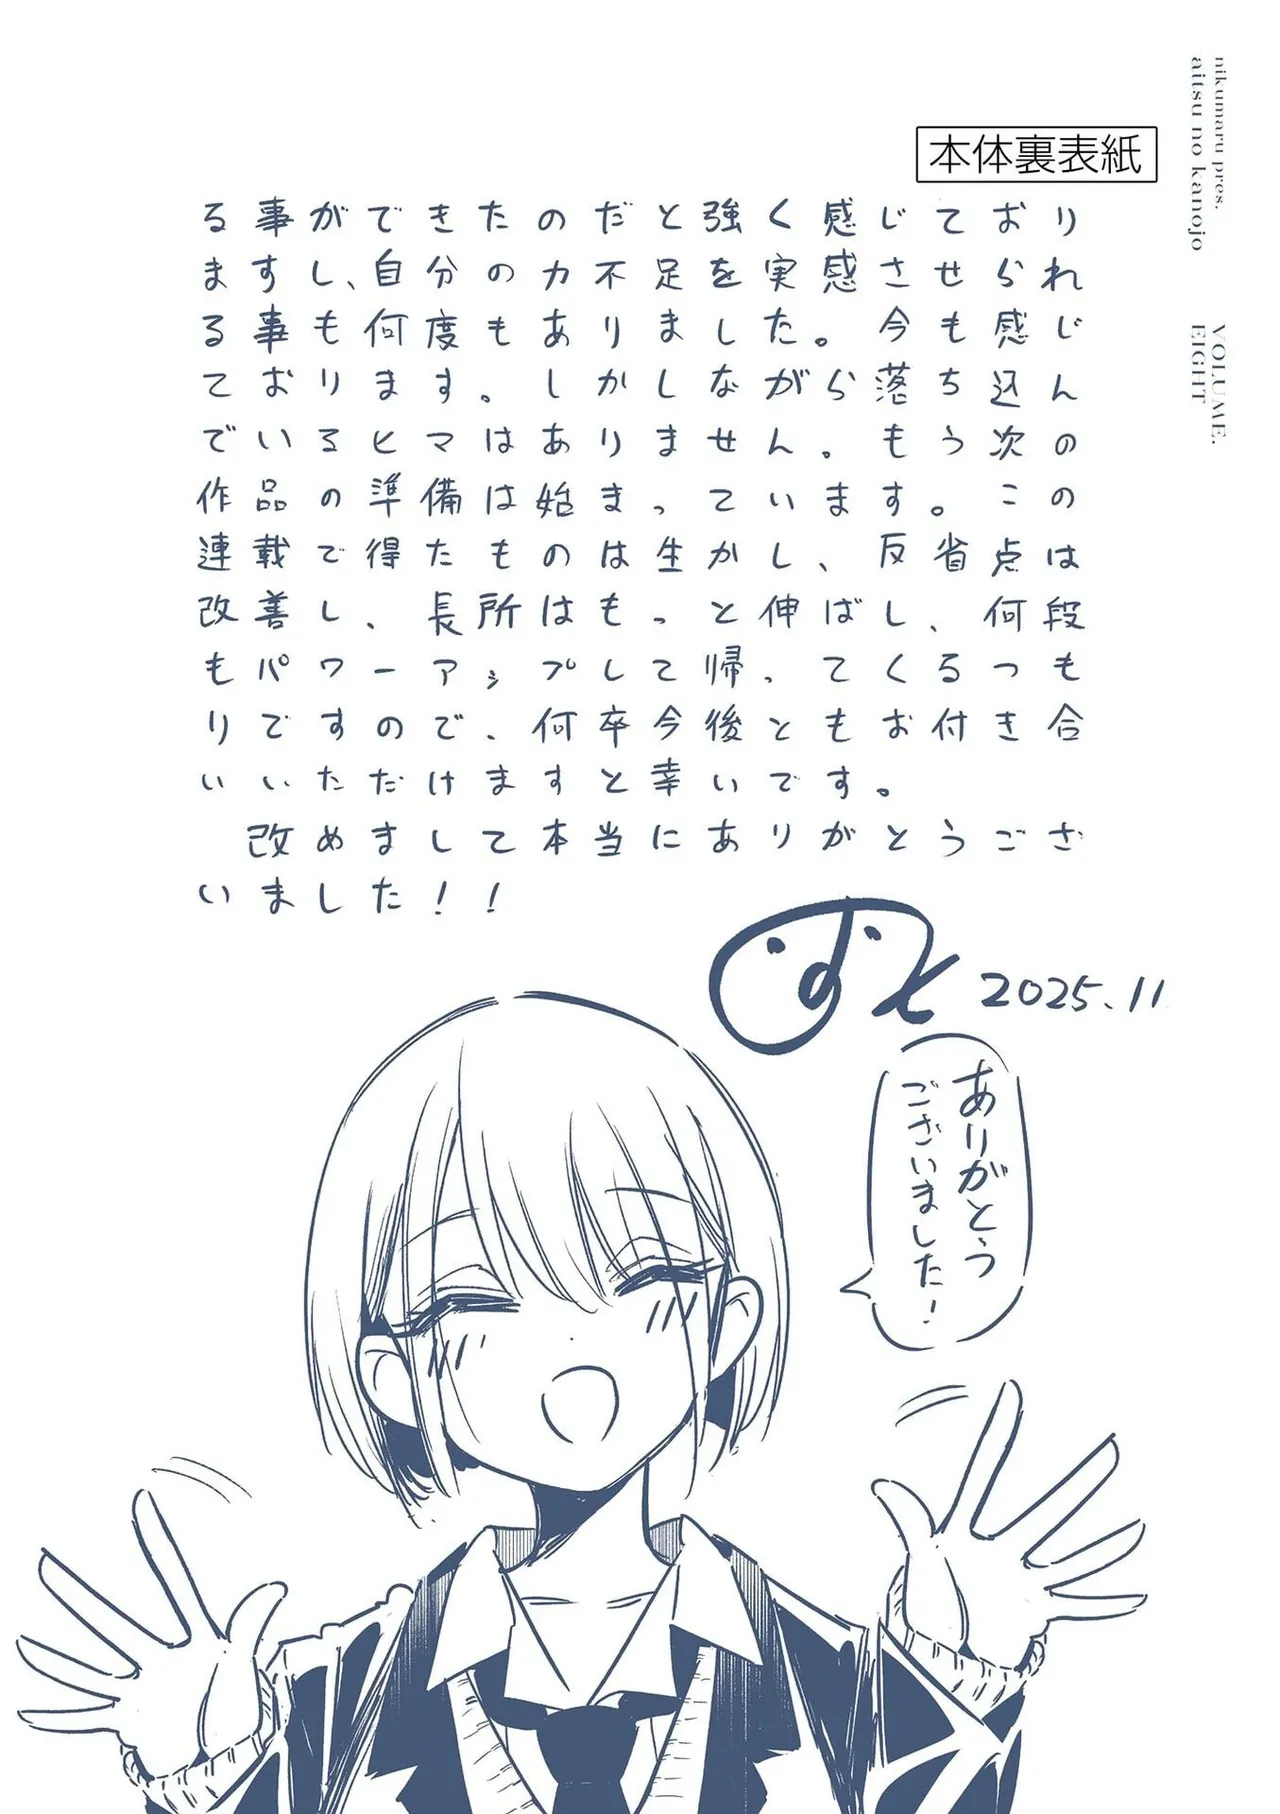 nikumaru pres.
aitsu no kanojo
VOLUME.
EIGHT
本体裏表紙
る事ができたのだと強く感じており
ますし、自分の力不足を実感させられ
る事も何度もありました。今も感じ
ております。しかしながら落ち込ん
でいるヒマはありません。もう次の
作品の準備は始まっています。この
連載で得たものは生かし、反省点は
改善し、長所はもっと伸ばし、何段
もパワーアップして帰ってくるつも
りですので、何卒今後ともお付き合
いいただけますと幸いです。
改めまして本当にありがとうござ
いました！！
2025.11
ありがとう
ございました！